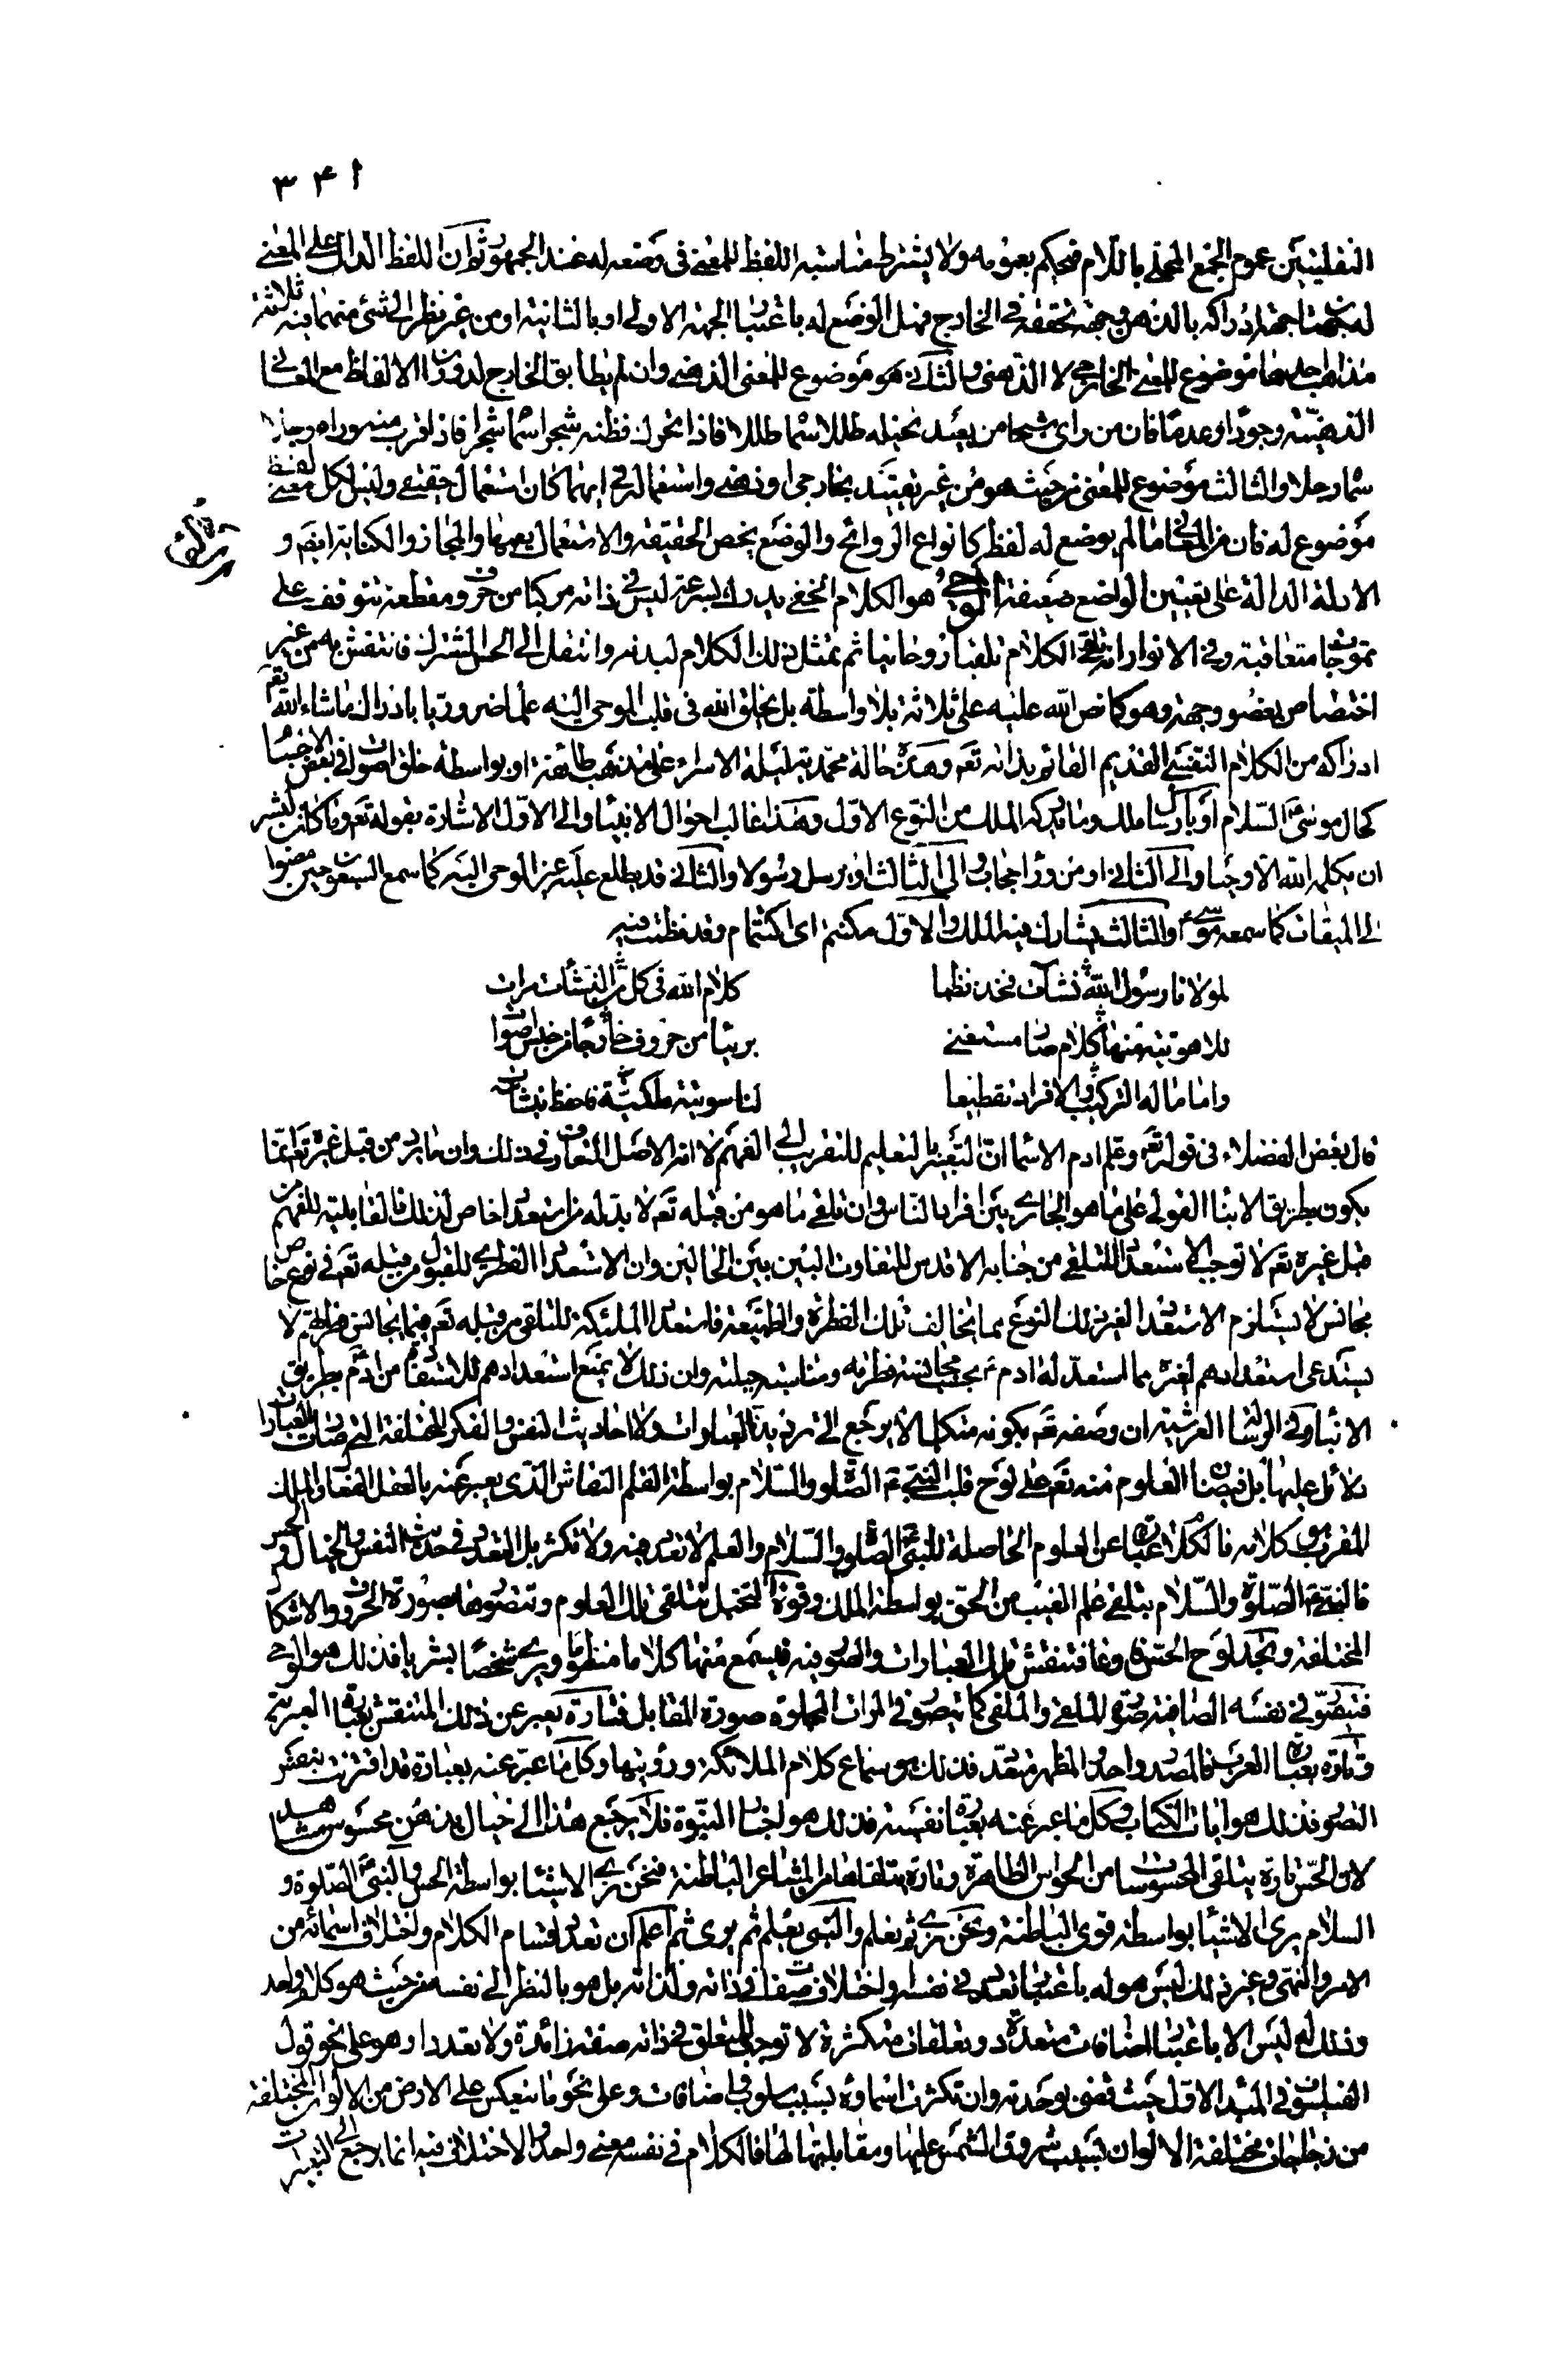 ٣٤١
الثقلين عموم الجمع المحلى باللام فيحكم بعمومه ولا يشترط مناسبة اللفظ للمعنى فى وضعه له عند الجمهور ثم ان اللفظ الدال على المعنى
له جهتا جهة ادراكه بالذهن وجهة تحققه في الخارج فهل الوضع له باعتبار الجهة الاولى او بالثانية او من غير نظر الى شئ منهما فيه ثلاثة
مذاهب احدها موضوع للمعنى الخارجي لا الذهنى والثانى هو موضوع للمعنى الذهنى وان لم يطابق الخارج لدوران الالفاظ مع المعانى
الذهنية وجودا وعدما فان من راى شبحا من بعيد تخيله طللا سماه طللا فاذا تحرك فظنه شجرا سماه شجرا فاذا قرب منه وراه رجلا
سماه رجلا والثالث موضوع للمعنى من حيث هو من غير تقييد بخارجى او ذهنى واستعماله فى ايهما كان استعمال حقيقى وليس لكل معنى لفظ
موضوع له فان من المعانى ما لم يوضع له لفظ كانواع الروائح والوضع يخص الحقيقة والاستعمال يعمها والمجاز والكناية ايضا و
الادلة الدالة على تعيين الواضع ضعيفة الوحي هو الكلام الخفى يدرك بسرعة ليس فى ذاته مركبا من حروف مقطعة تتوقف على
تموجات متعاقبة وفى الانوار انه تلقى الكلام تلقيا روحانيا ثم تمثل ذلك الكلام لبدنه وانتقل الى الحس المشترك فانتقش به من غير
اختصاص بعضو وجهة وهو كما نص الله عليه على ثلاثة بلا واسطة بل يخلق الله فى قلب الموحى اليه علما ضروريا بادراك ما شاء الله تعم
ادراكه من الكلام النفسى القديم القائم بذاته تعم وهذه حالة محمد ليلة الاسراء على مذهب طائفة او بواسطة خلق اصوات فى بعض الاجسام
كحال موسى السلام او بارسال ملك وما يدركه الملك من النوع الاول وهذا غالب احوال الانبياء والى الاول الاشارة بقوله تعم وما كان لبشر
ان يكلمه الله الا وحيا والى الثانى او من وراء حجاب والى الثالث او يرسل رسولا والثانى قد يطلع عليه غير الموحى اليه كما سمع السبعون حين مضوا
الى الميقات كما سمعه موسى والثالث يشارك فيه الملك والاول مكتم اى اكتتام وقد نظمت فيه
لمولانا رسول الله نشات فخذ نظما كلام الله فى كل من النشات مرات
للاهوتية منها كلام صار مستغنى بريئا من حروف خارجا من جنس اصوات
واما ما له التركيب والافراد تقطيعا لناسوتية ملكية فاحفظ نشات
قال بعض الفضلاء فى قوله تعم وعلم ادم الاسماء ان التعبير بالتعليم للتقريب الى الفهم لا انه الاصل المتعارف فى ذلك وان ما يرد من قبل غيره تعم انما
يكون بطريق الانباء القولى على ما هو الجارى بين افراد الناس وان تلقى ما هو من قبله تعم لا بد له من استعداد خاص لذلك فالقابلية للفهم من
قبل غيره تعم لا توجب الاستعداد للتلقى من جنابه الاقدس للتفاوت البين بين الحالين وان الاستعداد الفطرى للقبول من قبله تعم فى نوع خاص
مجانس لا يستلزم الاستعداد لغير ذلك النوع مما يخالف تلك الفطرة والطبيعة فاستعداد الملئكة للتلقى من قبله تعم فيما يجانس فطرتهم لا
يستدعى استعدادهم لغيره مما استعد له ادم بحسب مجانسة فطرته ومناسبة جبلته وان ذلك لا يمنع استعدادهم للاستفادة من ادم بطريق
الانباء وفى الرسالة العرشية ان وصفه تعم بكونه متكلما لا يرجع الى ترديد العبارات ولا احاديث النفس والفكر المختلفة التى صارت العبارات
دلائل عليها بل فيضان العلوم منه تعم على لوح قلب النبى الصلوة والسلام بواسطة القلم النقاش الذى يعبر عنه بالعقل الفعال والملك
المقرب هو كلامه فالكلام عبارة عن العلوم الحاصلة للنبى الصلوة والسلام والعلم لا تعدد فيه ولا تكثر بل التعدد فى حديث النفس والخيال والحس
فالنبى الصلوة والسلام يتلقى علم الغيب من الحق بواسطة الملك وقوة التخيل تتلقى تلك العلوم وتتصورها بصورة الحروف والاشكال
المختلفة وتجد لوح الحس فارغا فتنتقش تلك العبارات والصور فيه فيسمع منها كلاما منظوما ويرى شخصا بشريا فذلك هو الوحى
فتتصور فى نفسه الصافية صورة الملقى والملقى كما يتصور فى المرات المجلوة صورة المقابل فتارة يعبر عن ذلك المنتقش بعبارة العبرية
وتارة بعبارة العرب فالمصدر واحد والمظهر متعدد فذلك هو سماع كلام الملائكة ورؤيتها وكلما عبر عنه بعبارة قد اقترنت بنفس
التصور فذلك هو ايات الكتاب وكل ما عبر عنه بعبارة نفسية فذلك هو اخبار النبوة فلا يرجع هذا الى خيال يذهن محسوس مشاهد
لان الحس تارة يتلقى المحسوسات من الحواس الظاهرة وتارة يتلقاها من المشاعر الباطنة فنحن نرى الاشياء بواسطة الحس والنبى الصلوة و
السلام يرى الاشياء بواسطة قوى الباطنة ونحن نرى ثم نعلم والنبى يعلم ثم يرى ثم اعلم ان تعدد اقسام الكلام واختلاف اسمائه من
الامر والنهى وغير ذلك ليس هو له باعتبار تعدد فى نفسه واختلاف صفات فى ذاته ولذاته بل هو بالنظر الى نفسه من حيث هو كلام واحد
وذلك له ليس الا باعتبار اضافات متعددة وتعلقات متكثرة لا توجب للمتعلق فى ذاته صفة زائدة ولا تعددا وهو على نحو قول
الفيلسوف فى المبدا الاول حيث قضى بوحدته وان تكثرت اسماؤه بسبب سلوب واضافات وعلى نحو ما ينعكس على الارض من الالوان المختلفة
من زجاجات مختلفة الالوان بسبب شروق الشمس عليها ومقابلتها لها فالكلام فى نفسه معنى واحد والاختلاف فيه انما يرجع الى التعبيرات